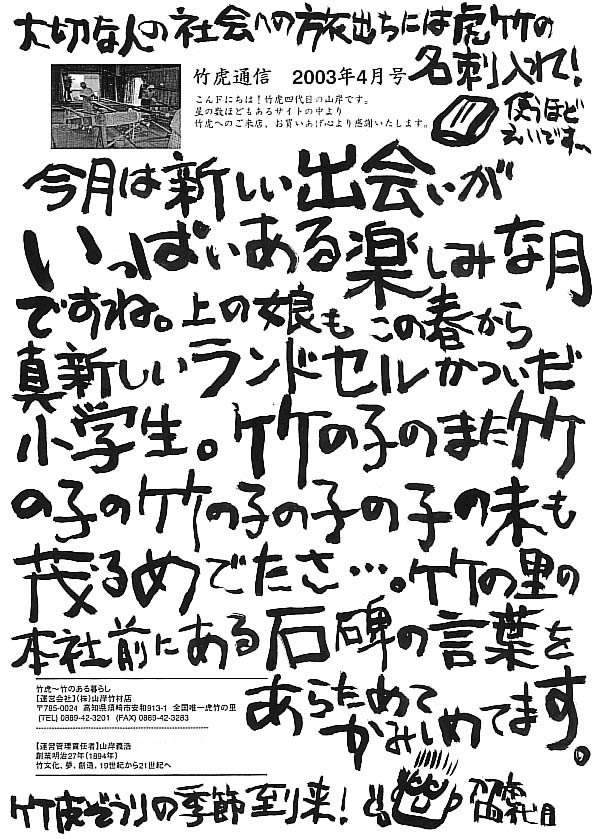 大切な人の社会への旅出ちには虎竹の
名刺入れ!
竹虎通信 2003年4月号
こんにちは!竹虎四代目の山岸です。
星の数ほどもあるサイトの中より
竹虎へのご来店、お買いあげ心より感謝いたします。
使うほど
えいです〜
今月は新しい出会いが
いっぱいある楽しみな月
ですね。上の娘もこの春から
真新しいランドセルかついだ
小学生。竹の子のまた竹
の子の竹の子の子の子の末も
茂るめでたさ…。竹の里の
本社前にある石碑の言葉を
あらためて
かみしめてます。
竹虎〜竹のある暮らし
【運営会社】(株)山岸竹材店
〒785-0024 高知県須崎市安和913-1 全国唯一虎竹の里
(TEL) 0889-42-3201 (FAX) 0889-42-3283
【運営管理責任者】山岸義浩
創業明治27年(1894年)
竹文化、夢、創造、19世紀から21世紀へ
竹皮ぞうりの季節到来!
竹虎
四代目